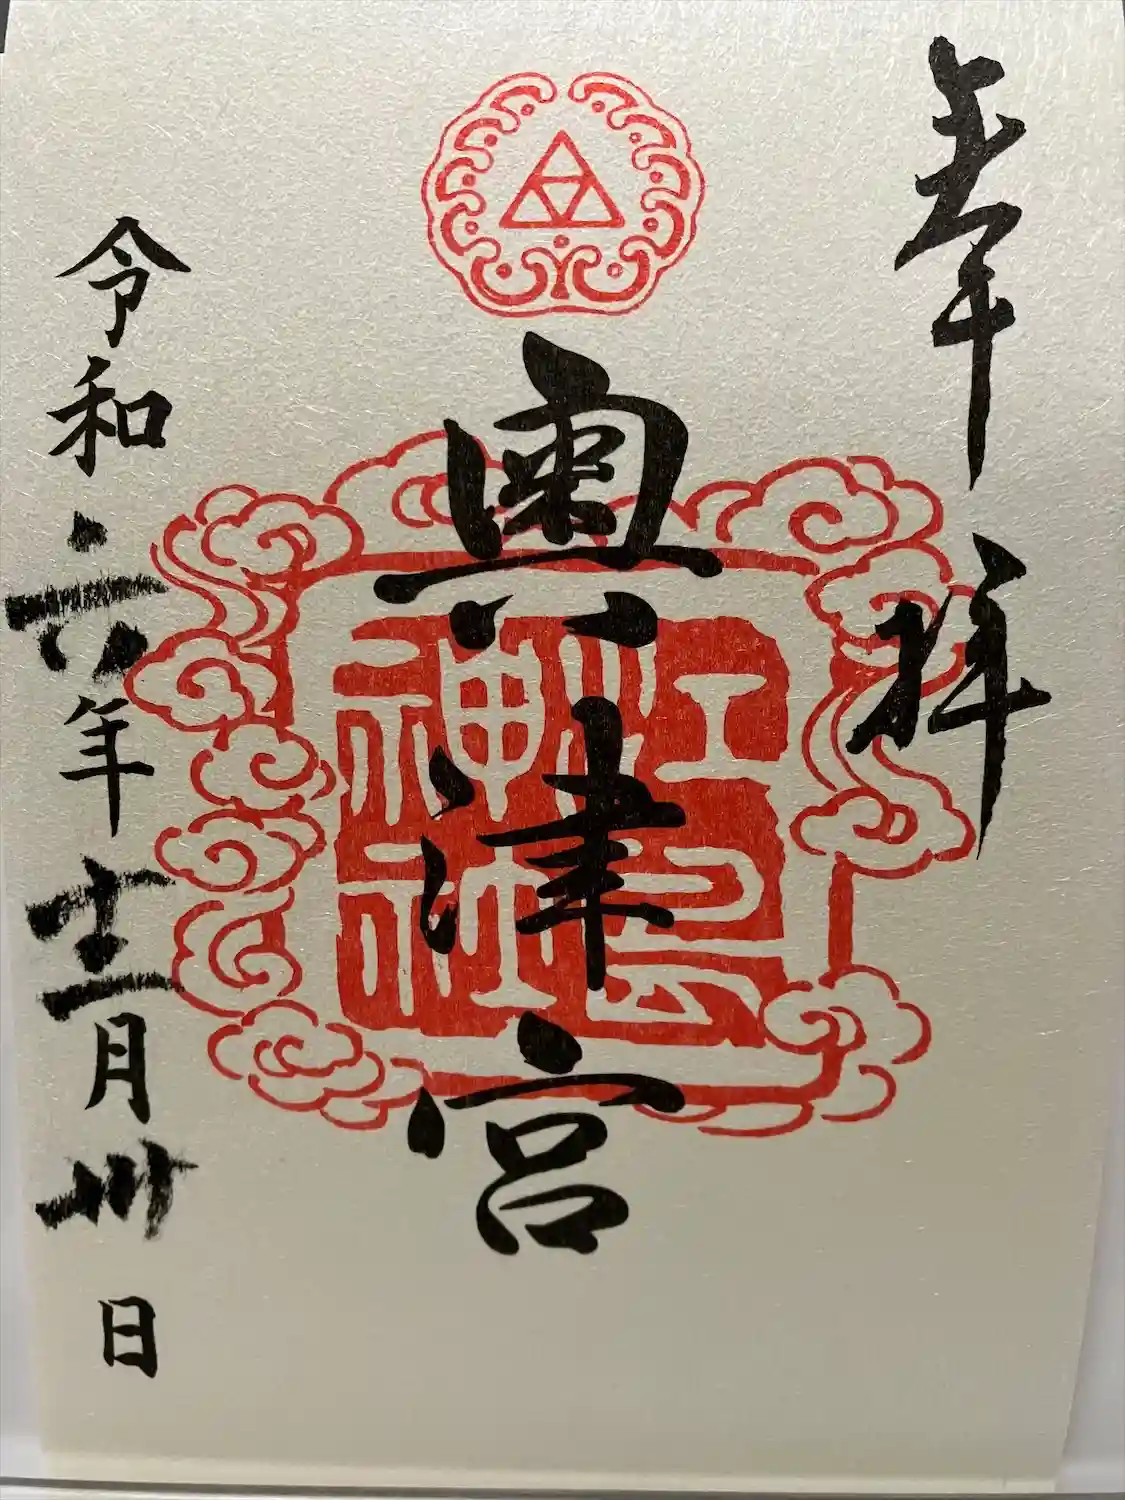 奉拝
奥津宮
江島神社
令和六年十二月卅日